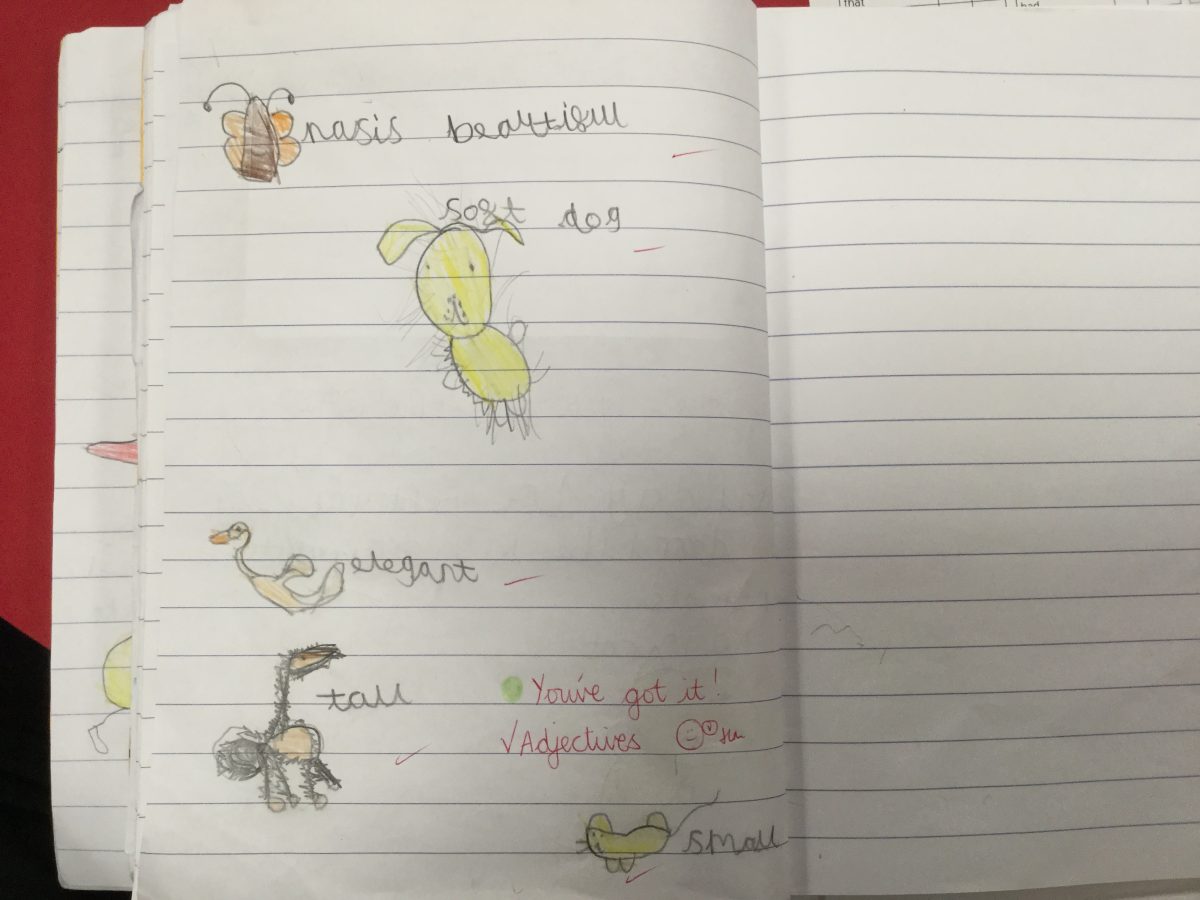 that
had
nasis beautiful
soft dog
elegant
tall
You've got it!
√Adjectives
small